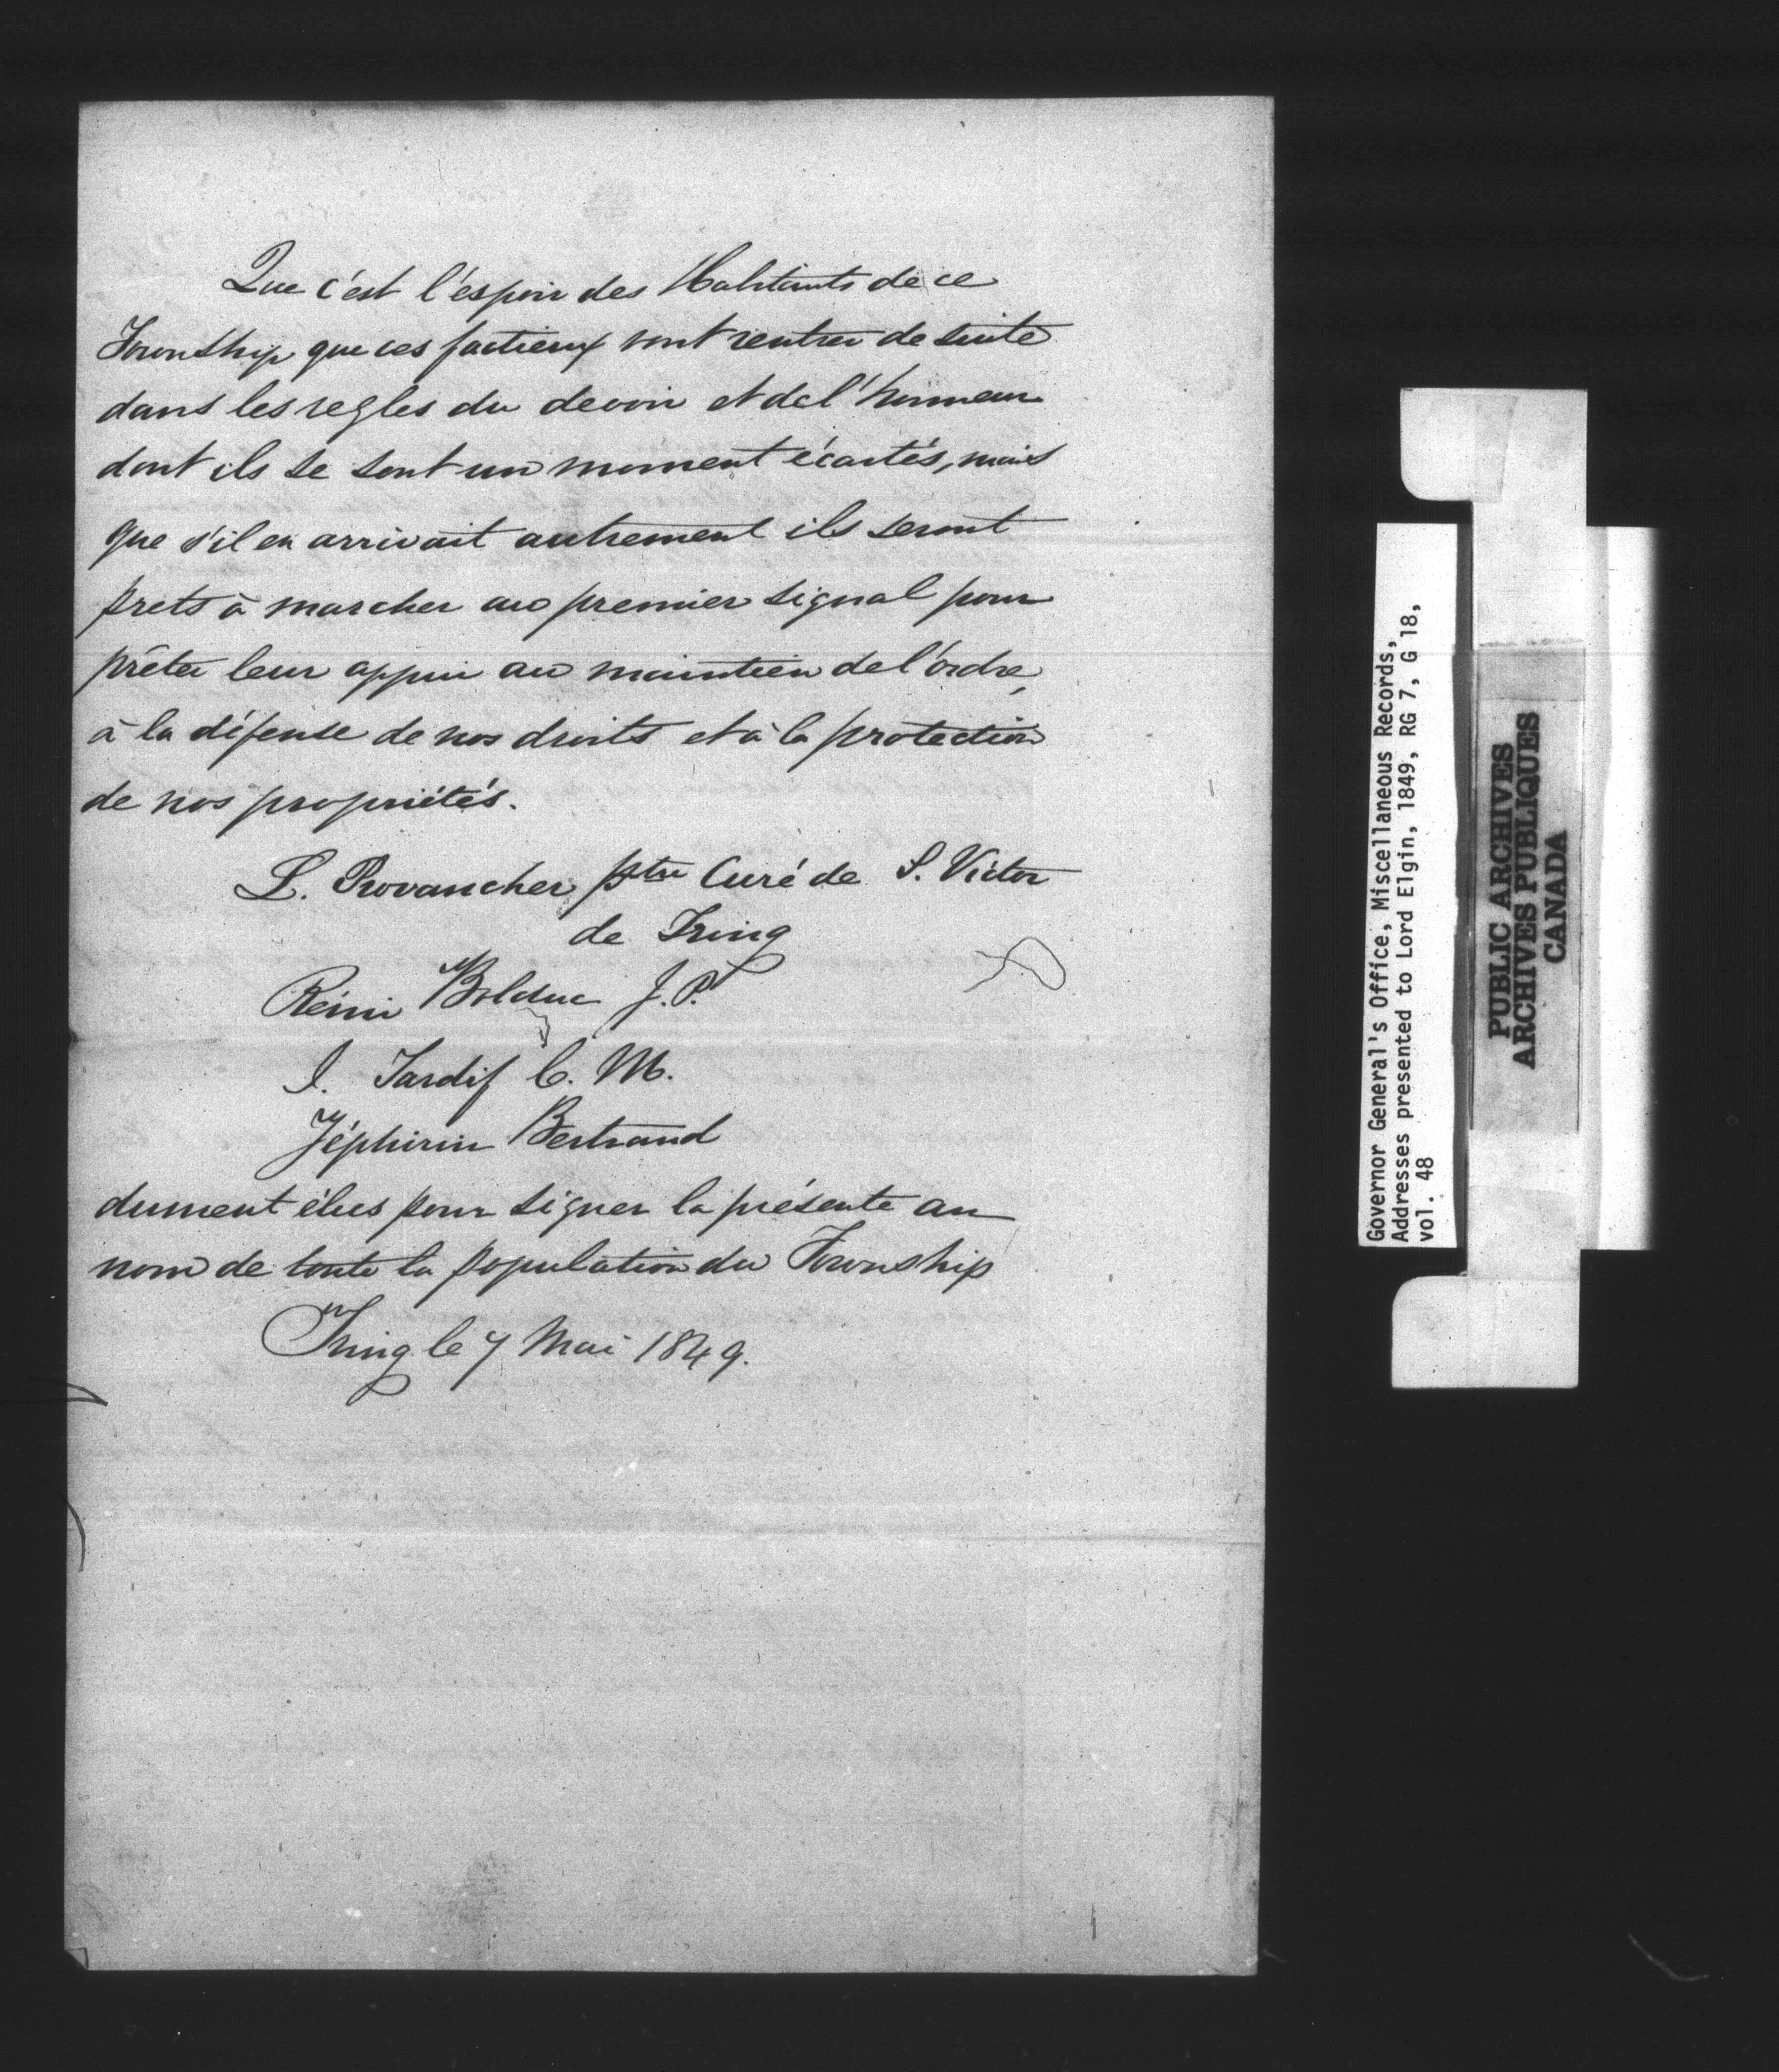 Que c'est l'éspoir des Habitants de ce
Township que ces factieux vont rentrer de suite
dans les regles du devoir et de l'honneur
dont ils se sont un moment écartés, mais
que s'il en arrivait autrement ils seront
prets à marcher au premier signal pour
prêter leur appui au maintien de l'ordre,
à la défense de nos droits et à la protection
de nos propriétés.
L. Provancher ptre Curé de S. Victor
de Tring
Rémi Bolduc J. P.
I. Tardif C. M.
Zéphirin Bertrand
dument élus pour signer la présente au
nom de toute la population du Township
Tring le 7 Mai 1849.
Governor General's Office, Miscellaneous Records,
Addresses presented to Lord Elgin, 1849, RG 7, G 18,
vol. 48
PUBLIC ARCHIVES
ARCHIVES PUBLIQUES
CANADA